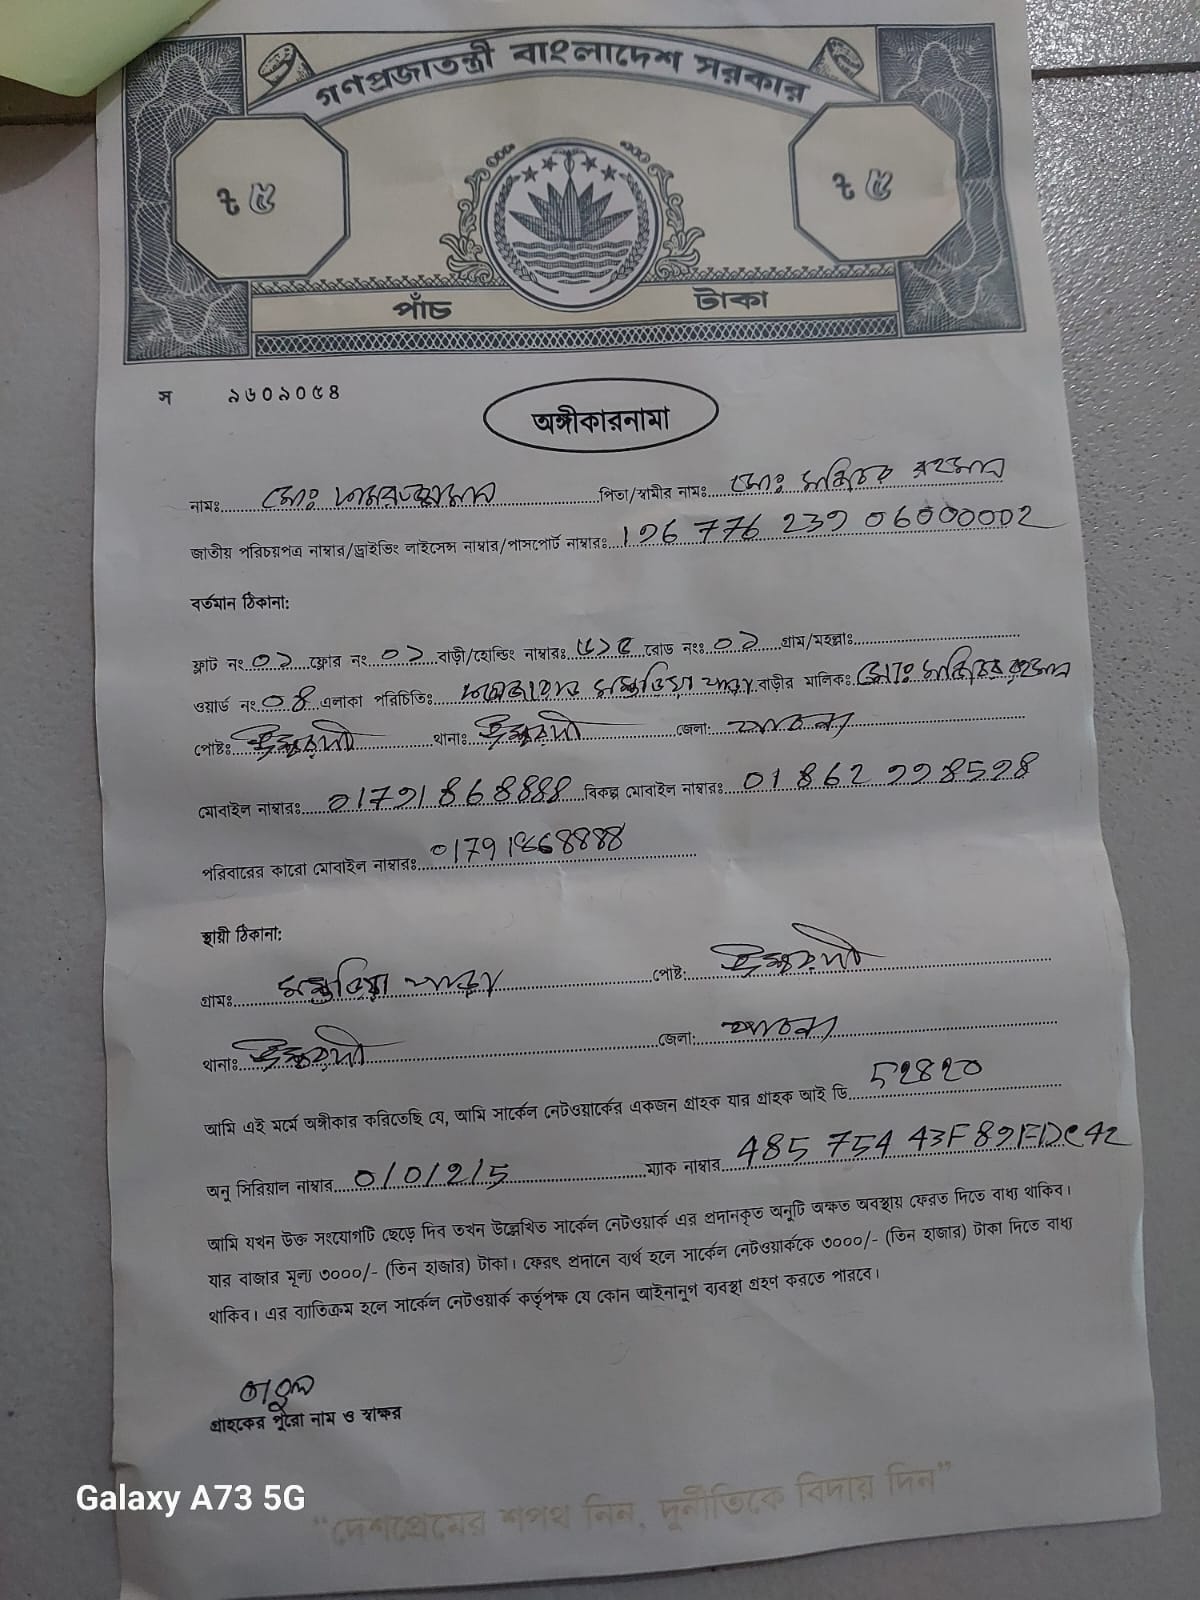 গণপ্রজাতন্ত্রী বাংলাদেশ সরকার
৳ ৫ ৳ ৫
পাঁচ টাকা
স ৯৬০৯০৫৪
অঙ্গীকারনামা
নামঃ মোঃ পিতা/স্বামীর নামঃ মোঃ রহমান
জাতীয় পরিচয়পত্র নাম্বার/ড্রাইভিং লাইসেন্স নাম্বার/পাসপোর্ট নাম্বারঃ
বর্তমান ঠিকানা:
ফ্লাট নং ০১ ফ্লোর নং ০১ বাড়ী/হোল্ডিং নাম্বারঃ রোড নংঃ ০১ গ্রাম/মহল্লাঃ
ওয়ার্ড নং ০৪ এলাকা পরিচিতিঃ পাড়া বাড়ীর মালিক: মোঃ রহমান
পোষ্টঃ ঈশ্বরদী থানাঃ ঈশ্বরদী জেলা: পাবনা
মোবাইল নাম্বারঃ 01791868888 বিকল্প মোবাইল নাম্বারঃ
পরিবারের কারো মোবাইল নাম্বারঃ 01791868888
স্থায়ী ঠিকানা:
গ্রামঃ পাড়া পোষ্ট: ঈশ্বরদী
থানাঃ ঈশ্বরদী জেলা: পাবনা
আমি এই মর্মে অঙ্গীকার করিতেছি যে, আমি সার্কেল নেটওয়ার্কের একজন গ্রাহক যার গ্রাহক আই ডি
অনু সিরিয়াল নাম্বার 0/0/2/5 ম্যাক নাম্বার
আমি যখন উক্ত সংযোগটি ছেড়ে দিব তখন উল্লেখিত সার্কেল নেটওয়ার্ক এর প্রদানকৃত অনুটি অক্ষত অবস্থায় ফেরত দিতে বাধ্য থাকিব।
যার বাজার মূল্য ৩০০০/- (তিন হাজার) টাকা। ফেরৎ প্রদানে ব্যর্থ হলে সার্কেল নেটওয়ার্ককে ৩০০০/- (তিন হাজার) টাকা দিতে বাধ্য
থাকিব। এর ব্যাতিক্রম হলে সার্কেল নেটওয়ার্ক কর্তৃপক্ষ যে কোন আইনানুগ ব্যবস্থা গ্রহণ করতে পারবে।
গ্রাহকের পুরো নাম ও স্বাক্ষর
Galaxy A73 5G
"দেশপ্রেমের শপথ নিন, দুর্নীতিকে বিদায় দিন"